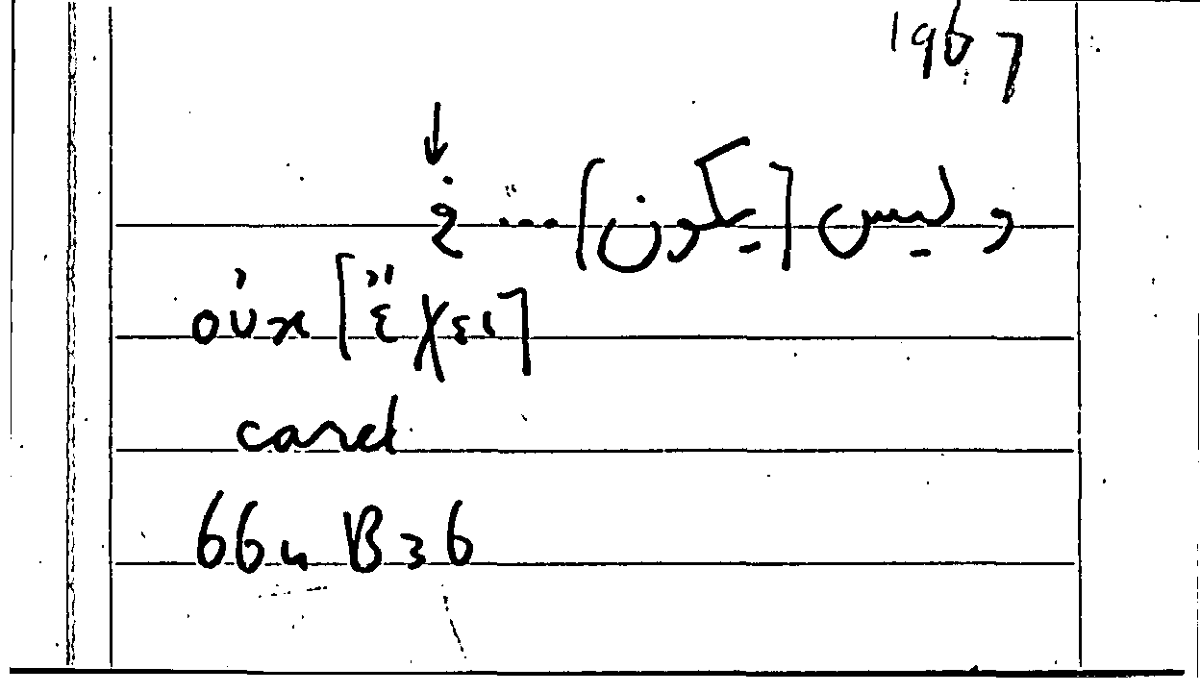 1967
↓
وليس [يكون] ... في
οὐχ [ἔχει]
card
664 B36